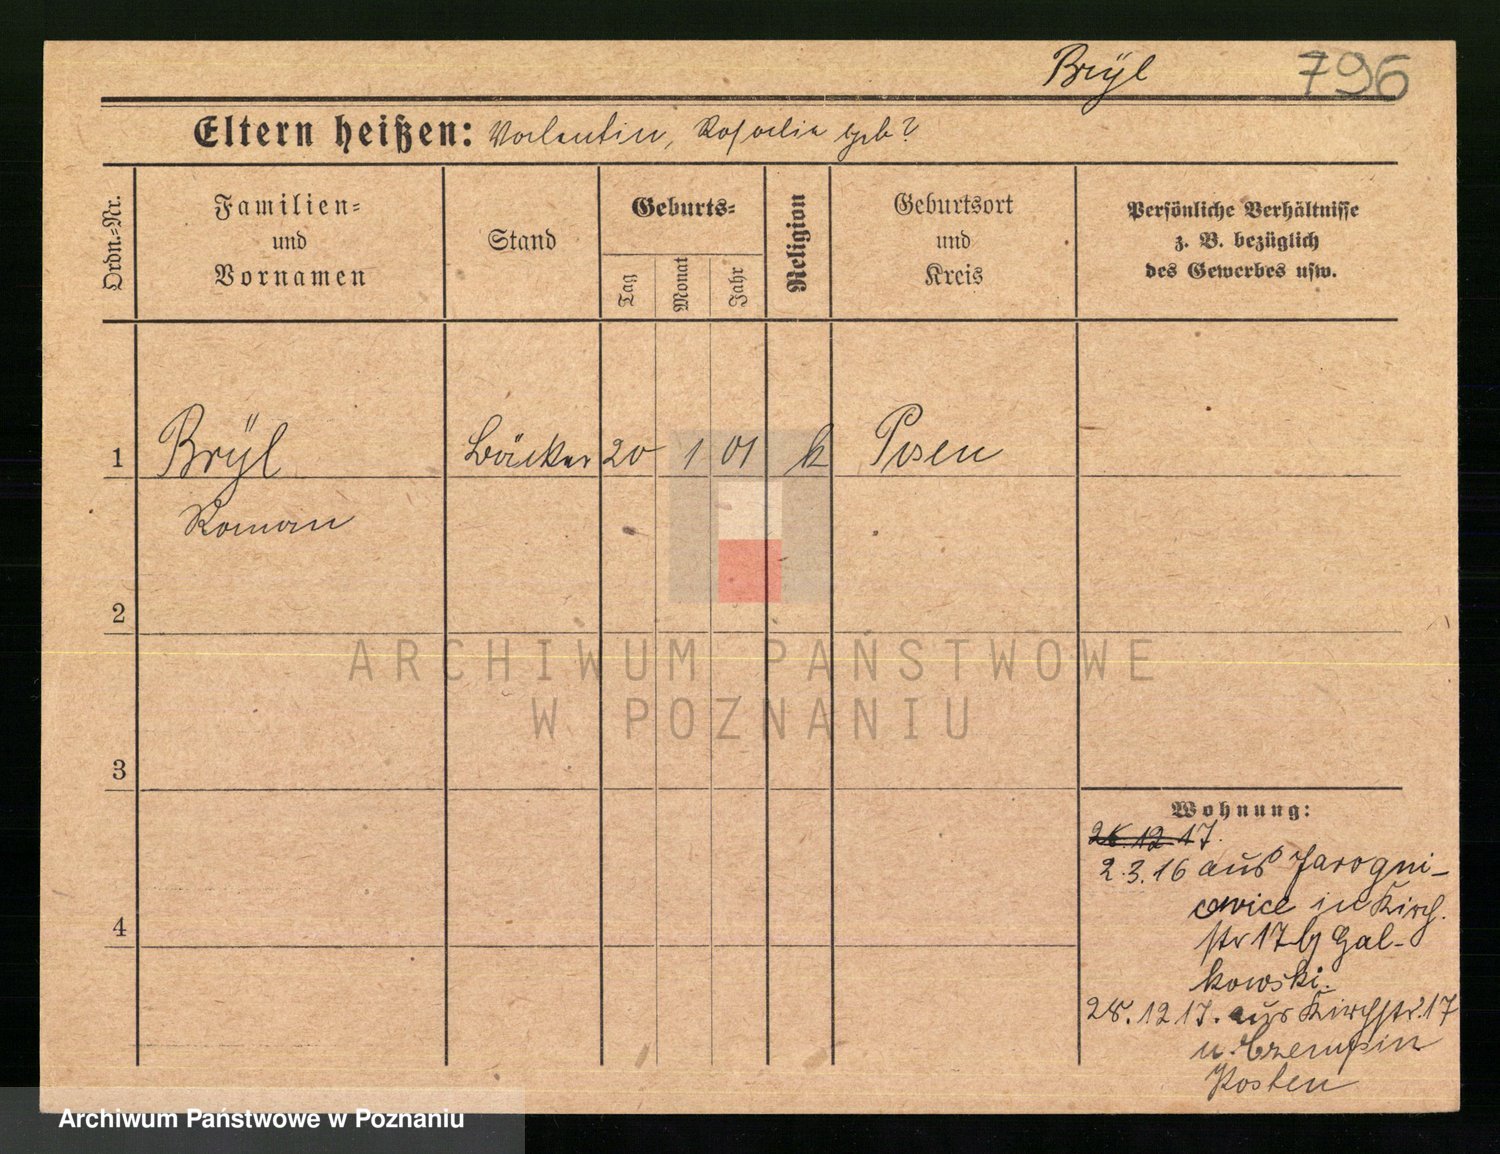 Brÿl 796
Eltern heißen: Valentin, Rosalie geb?
Ordn.-Nr.
Familien-
und
Vornamen
Stand
Geburts-
Tag
Monat
Jahr
Religion
Geburtsort
und
Kreis
Persönliche Verhältnisse
z. B. bezüglich
des Gewerbes usw.
1 Brÿl Bäcker 20 1 01 k Posen
Roman
2
3
4
Wohnung:
12.17.
2.3.16 aus Jarogni-
ewice in Kirch.
str 17 b Gal-
kowski.
28.12.17. aus Kirchstr. 17
n. Czempin
Kosten
ARCHIWUM PAŃSTWOWE
W POZNANIU
Archiwum Państwowe w Poznaniu